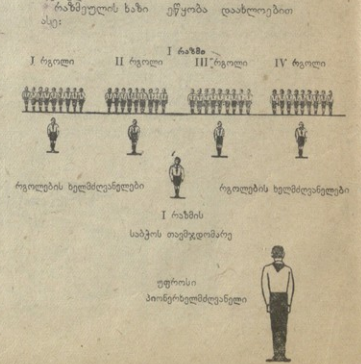 რაზმეულის ხაზი ეწყობა დაახლოებით
ასე:
I რაზმი
I რგოლი II რგოლი III რგოლი IV რგოლი
რგოლების ხელმძღვანელები რგოლების ხელმძღვანელები
I რაზმის
საბჭოს თავმჯდომარე
უფროსი
პიონერხელმძღვანელი